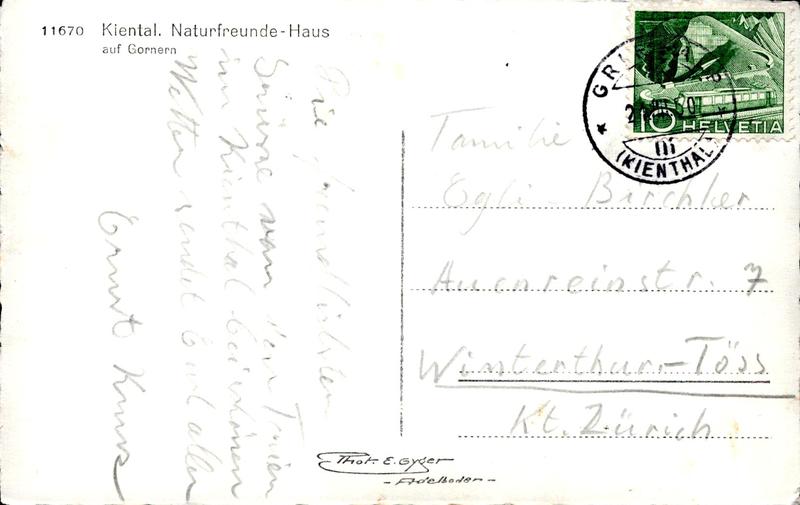 11670 Kiental. Naturfreunde-Haus
auf Gornern
Die freundlichsten
Grüsse von den Ferien
im Kienthal bei schönem
Wetter sendet Euch allen
Ernst
Familie
Egli-Birchler
Auenreinstr. 7
Winterthur-Töss
Kt. Zürich
(KIENTHAL)
10 HELVETIA
Phot. E. Gyger
- Adelboden -